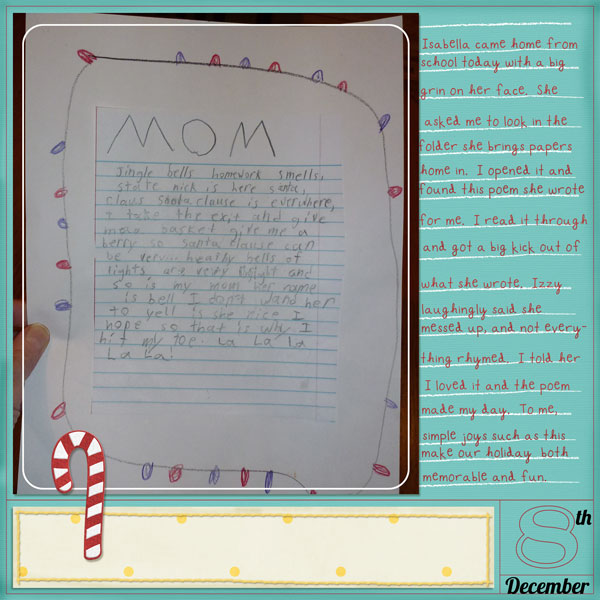 MOM
Jingle bells homework smells,
state nick is here santa,
claus Santa clause is everywhere,
I take the exit and give
mom basket give me a
berry so santa clause can
be very... healty bells of
lights, are very bright and
so is my mom her name
is bell I don't wand her
to yell is she nice I
hope so that is why I
hit my toe. La La la
La La!
Isabella came home from
school today with a big
grin on her face. She
asked me to look in the
folder she brings papers
home in. I opened it and
found this poem she wrote
for me. I read it through
and got a big kick out of
what she wrote. Izzy
laughingly said she
messed up, and not every-
thing rhymed. I told her
I loved it and the poem
made my day. To me,
simple joys such as this
make our holiday both
memorable and fun.
8th
December